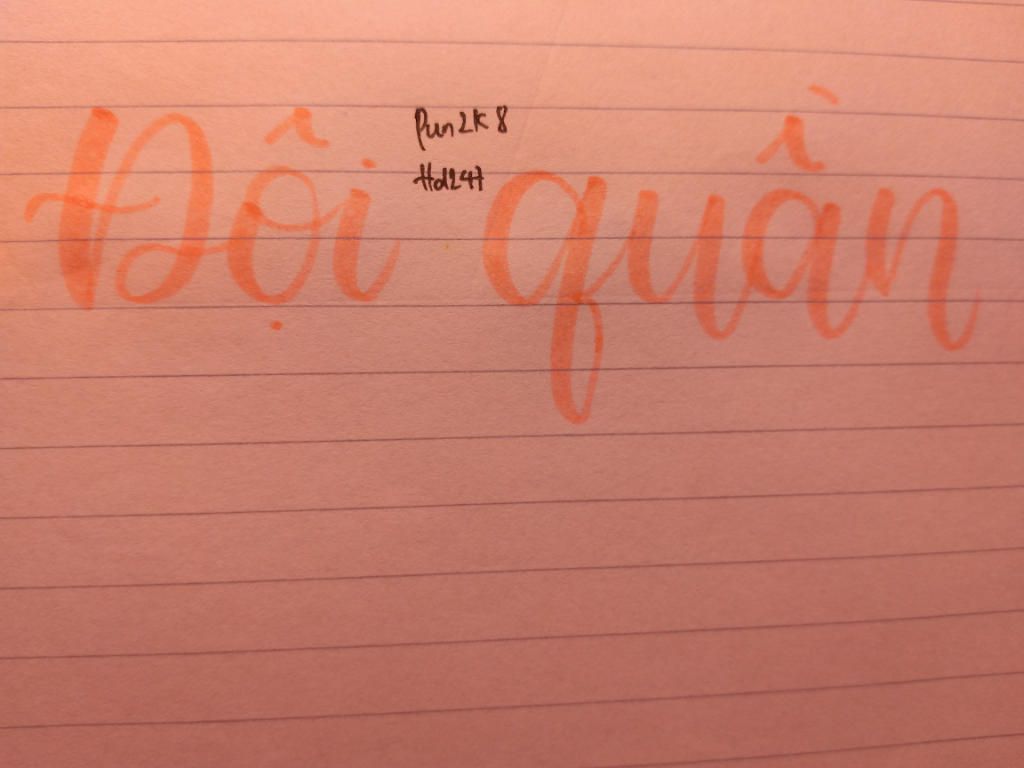 Đội quần
Pun2k8
Hd247